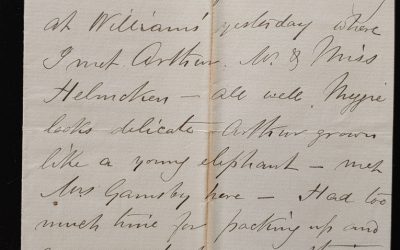 at Williams' yesterday where
I met Arthur. Mr. & Miss
Helmcken – all well. Megie
looks delicate – Arthur grown
like a young elephant – met
Mrs Gamsby here – Had too
much time for packing up and